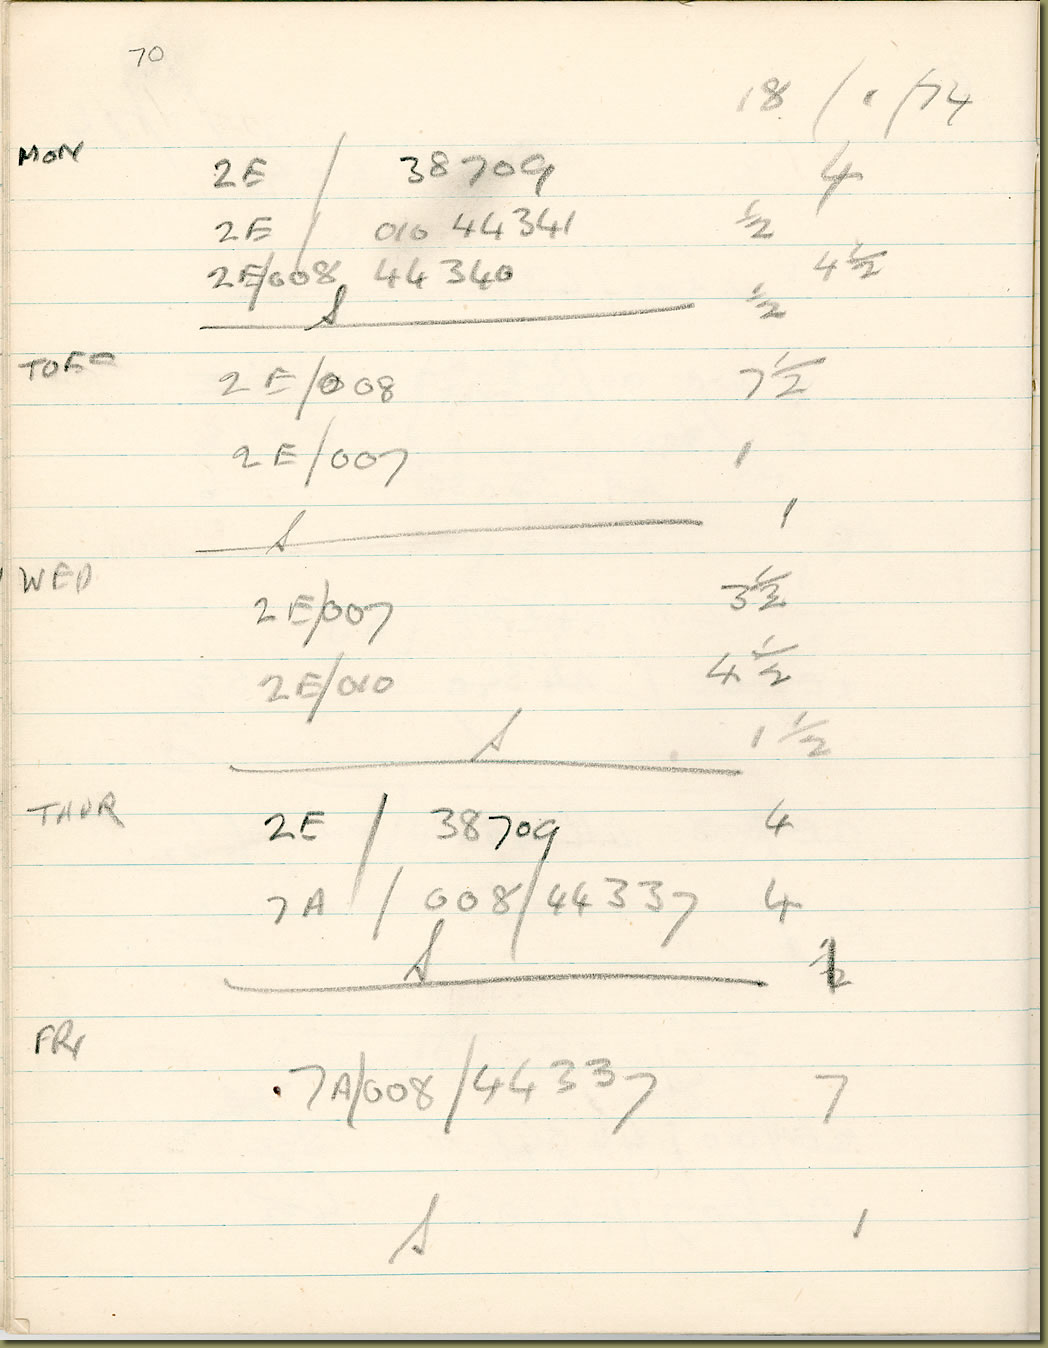 70
18 / 1 / 74
MON 2E / 38709 4
2E / 010 44341 ½
2E/008 44340 4½
S ½
TUE 2E/008 7½
2E/007 1
S 1
WED 2E/007 3½
2E/010 4½
S 1½
THUR 2E / 38709 4
7A / 008/44337 4
S ½
FRI .7A/008/44337 7
S 1